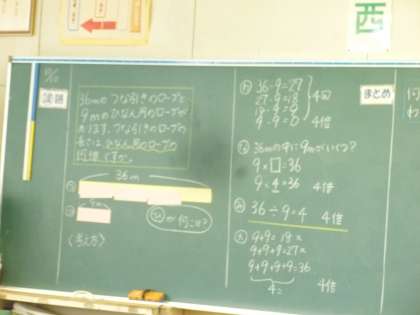 西
課題
36mのつな引きのロープと
9mのひなん用のロープが
あります。つな引きのロープの
長さは、ひなん用のロープの
何倍ですか。
36m
9m
が何こ?
(考え方)
36-9=27
27-9=18
18-9=9
9-9=0
4回
4倍
36mの中に9mがいくつ?
9×□=36
9×4=36 4倍
36÷9=4 4倍
9+9=18×
9+9+9=27×
9+9+9+9=36
4こ 4倍
まとめ